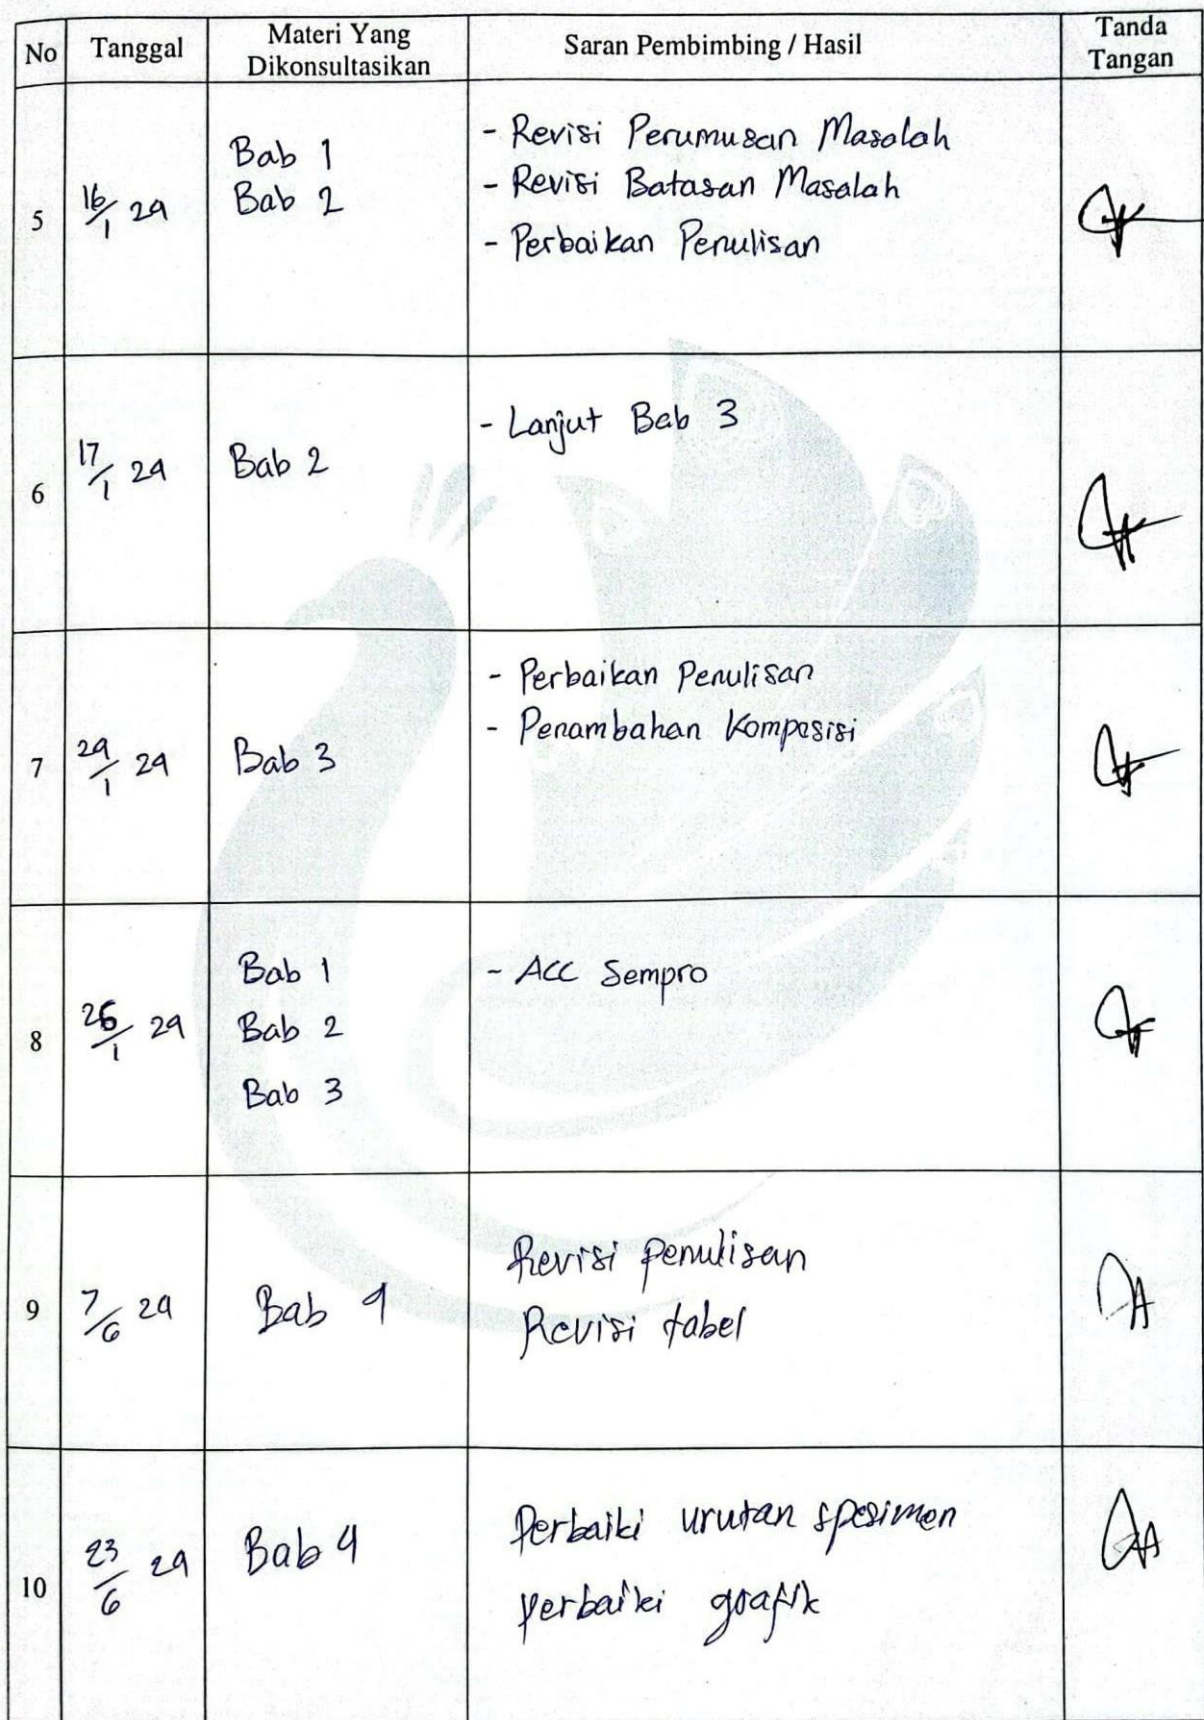 No Tanggal Materi Yang Dikonsultasikan Saran Pembimbing / Hasil Tanda Tangan
5 16/1 24 Bab 1 - Revisi Perumusan Masalah
Bab 2 - Revisi Batasan Masalah
- Perbaikan Penulisan
6 17/1 24 Bab 2 - Lanjut Bab 3
7 24/1 24 Bab 3 - Perbaikan Penulisan
- Penambahan Komposisi
8 26/1 24 Bab 1 - Acc Sempro
Bab 2
Bab 3
9 7/6 24 Bab 4 Revisi penulisan
Revisi tabel
10 23/6 24 Bab 4 Perbaiki urutan spesimen
perbaiki grafik